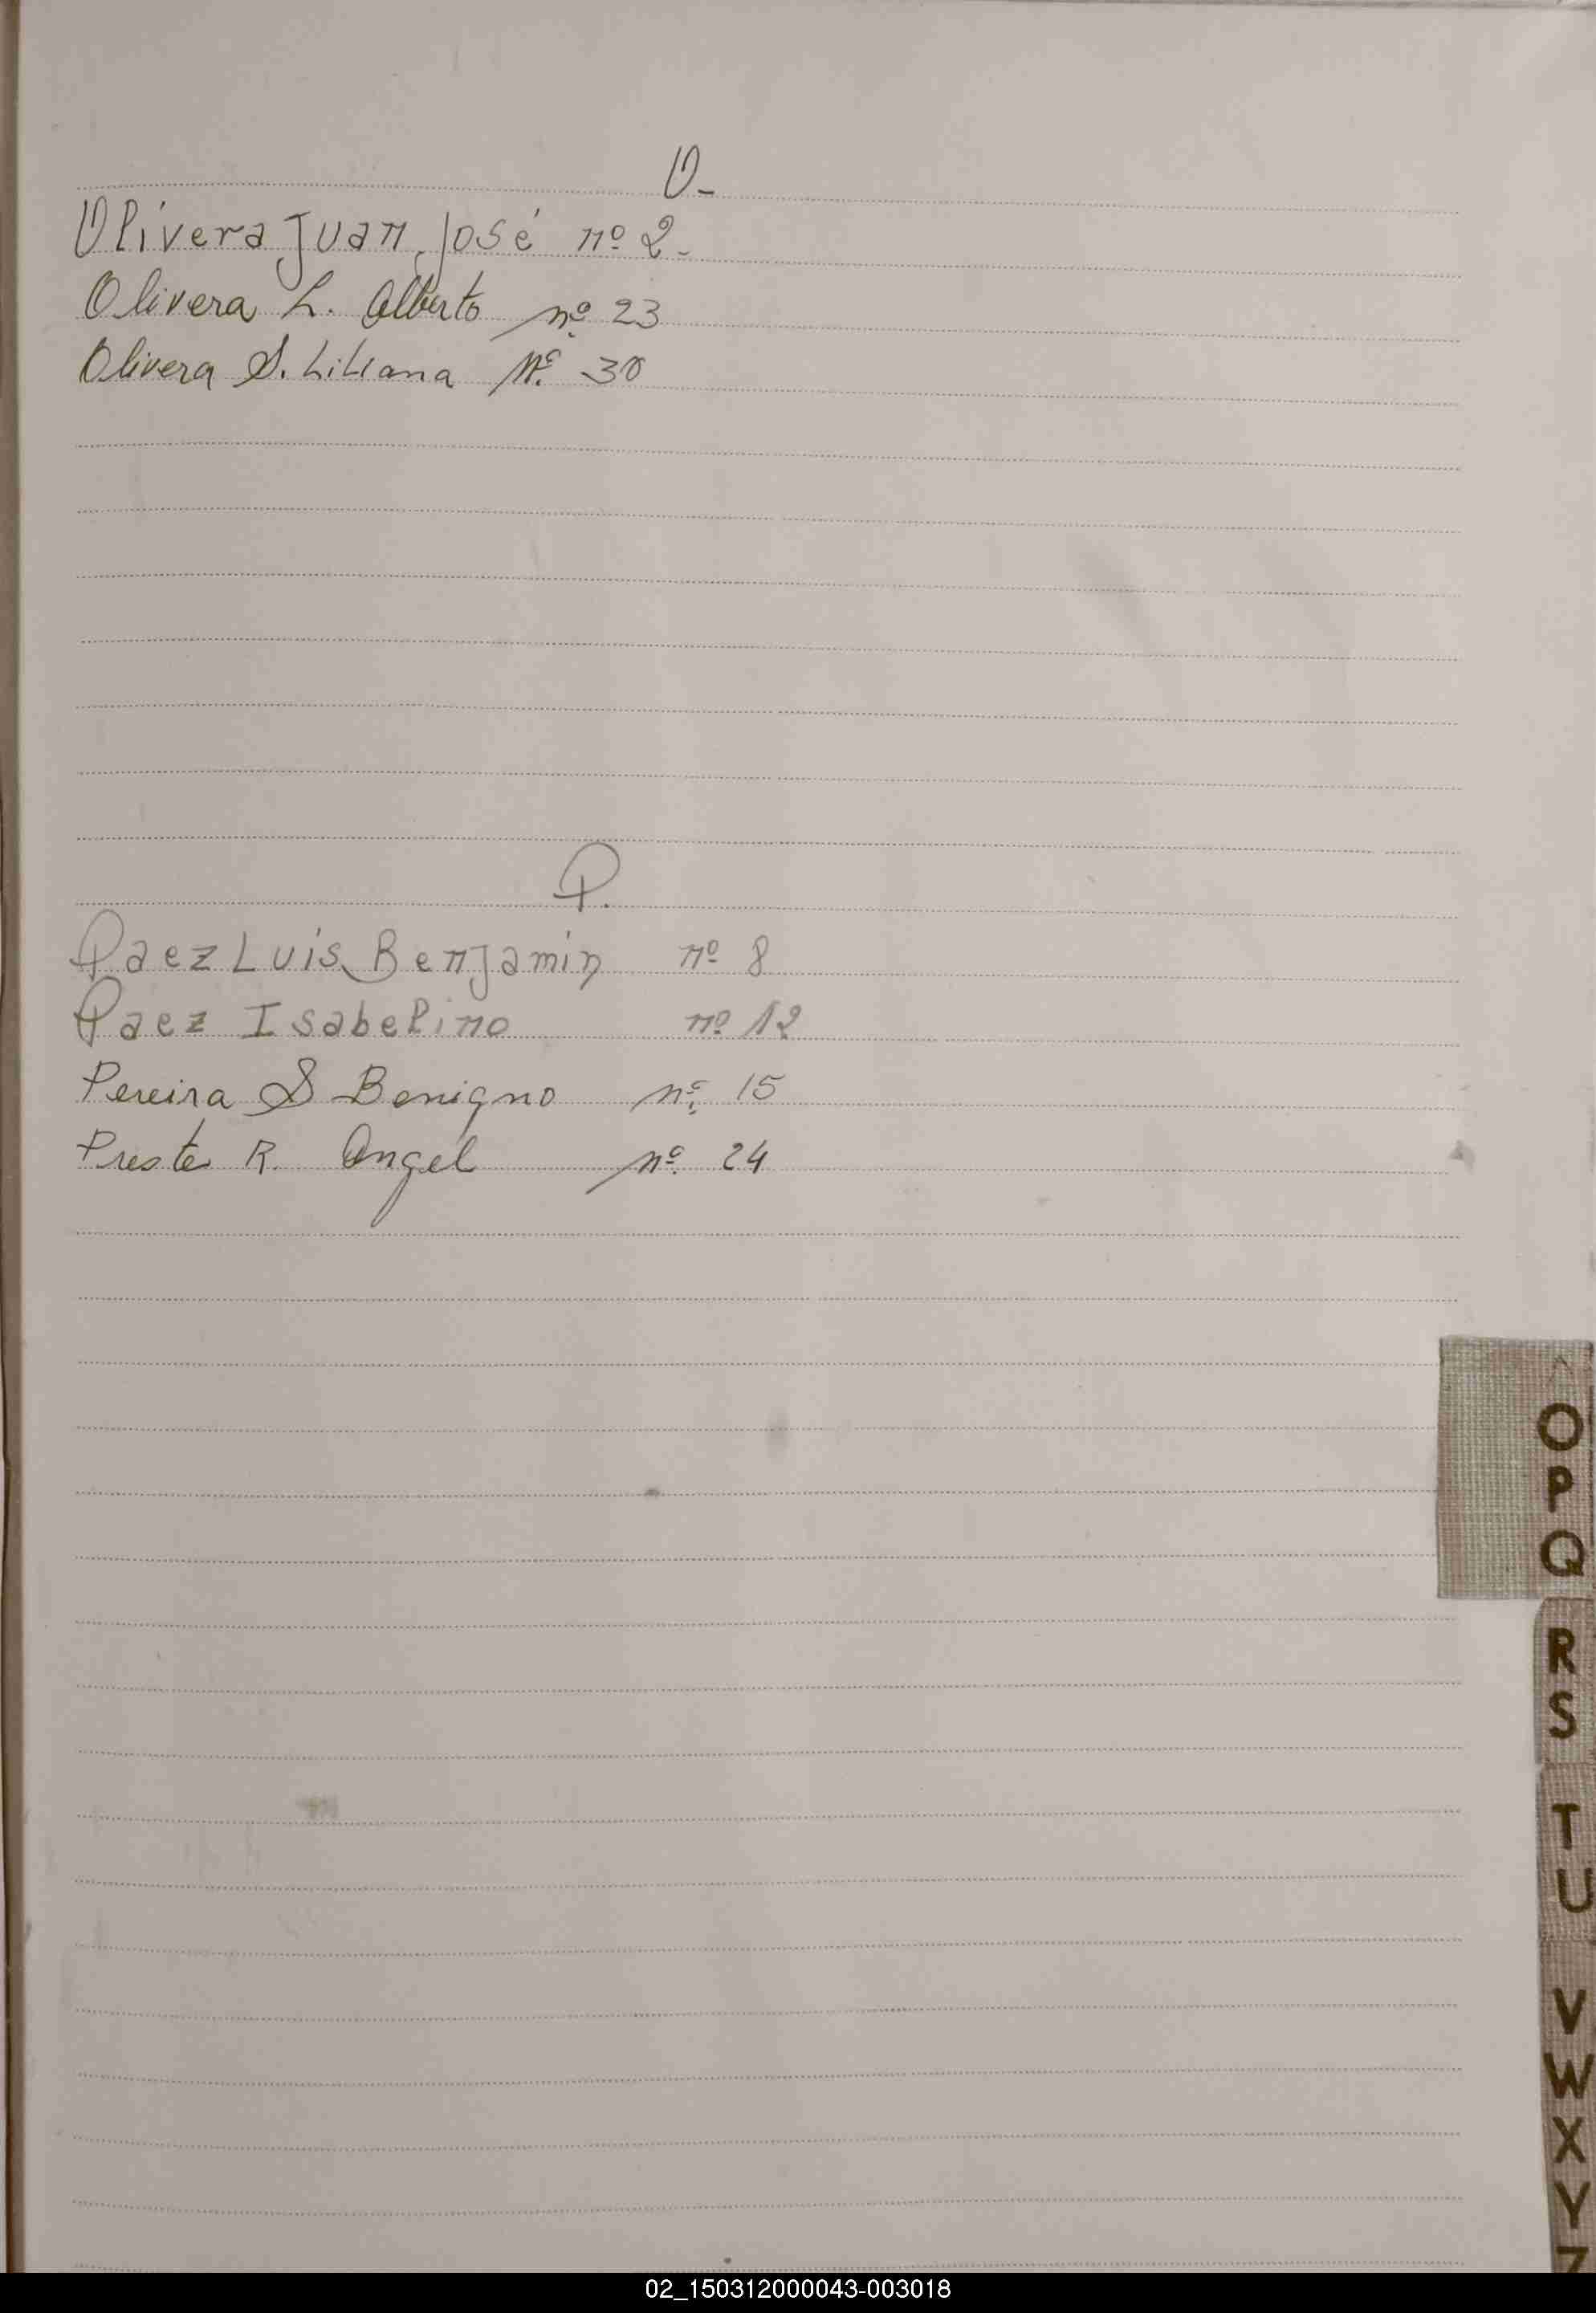 O-
Olivera Juan José nº 2-
Olivera L. Alberto nº 23
Olivera S. Liliana Nº 30
P.
Paez Luis Benjamin nº 8
Paez Isabelino nº 12
Pereira S Benigno nº 15
Preste R. Angel nº 24
O
P
Q
R
S
T
U
V
W
X
Y
Z
02_150312000043-003018